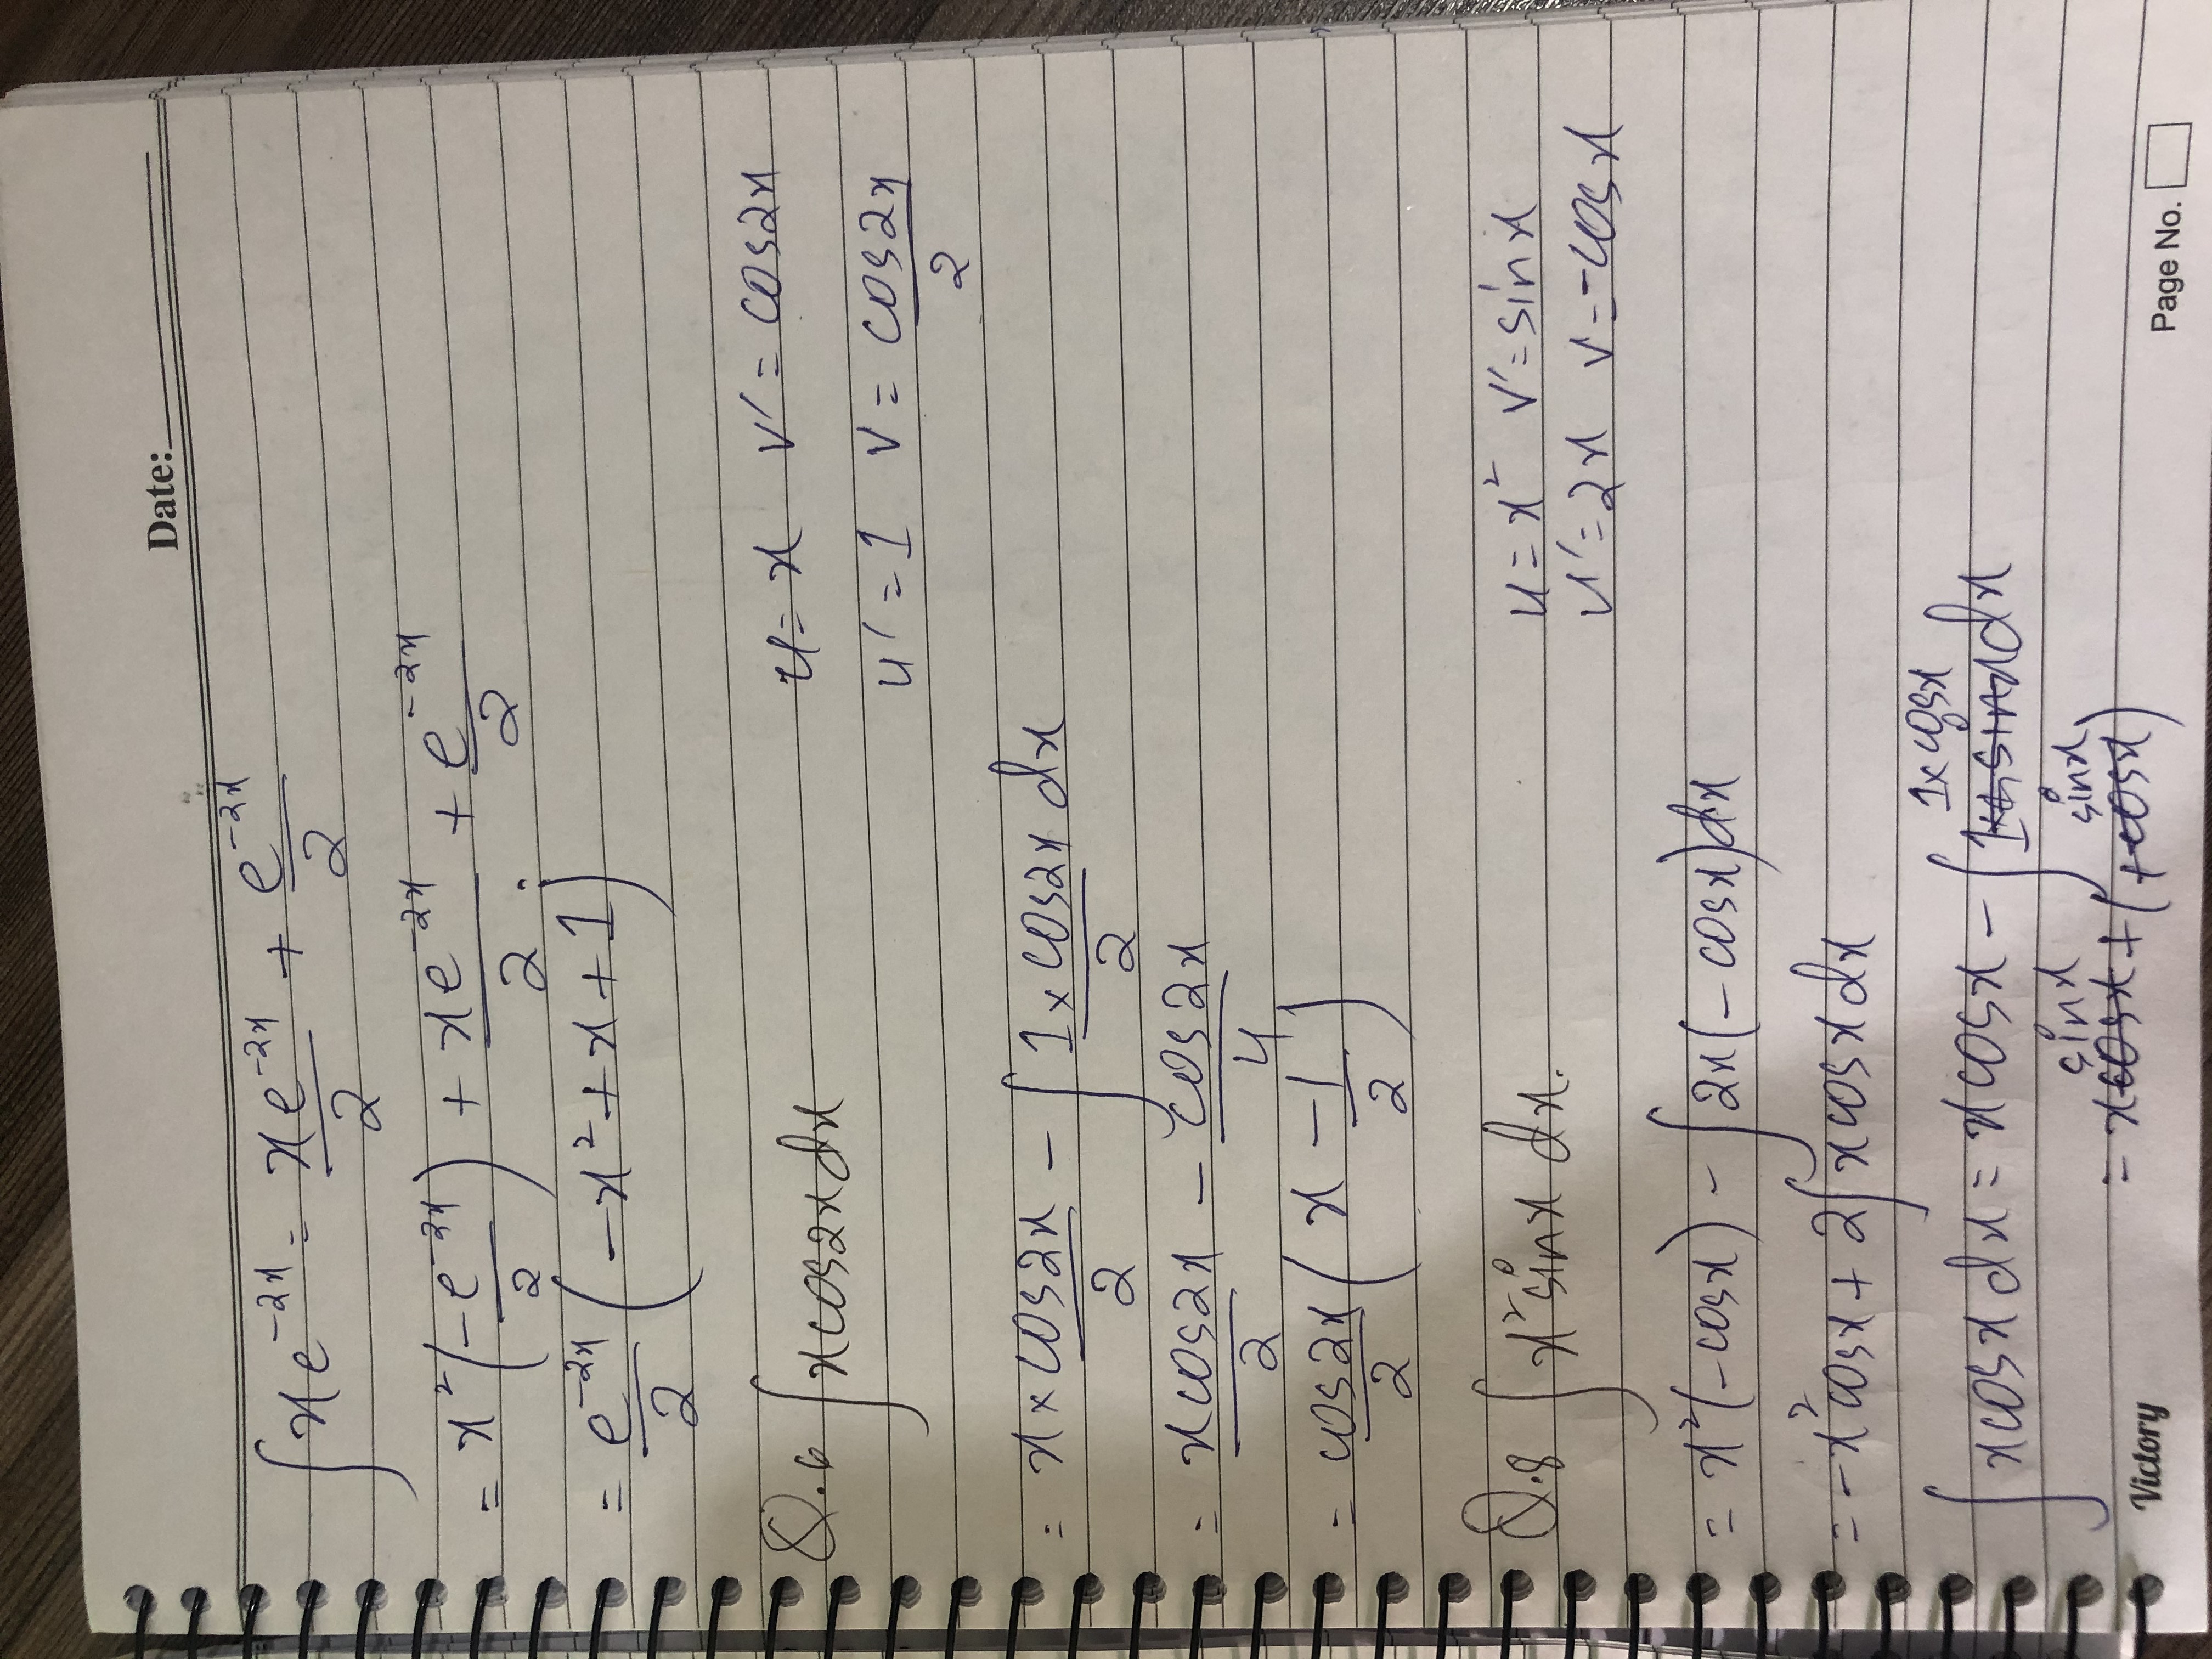 Date:
∫ x e^{-2x} = x e^{-2x}/2 + e^{-2x}/2
= x² (-e^{-2x}/2) + x e^{-2x}/2 + e^{-2x}/2
= e^{-2x}/2 (-x² + x + 1)
Q.6 ∫ x cos2x dx
u = x v' = cos2x
u' = 1 v = cos2x/2
= x × cos2x/2 - ∫ 1 × cos2x/2 dx
= x cos2x/2 - cos2x/4
= cos2x/2 (x - 1/2)
Q.8 ∫ x² sinx dx.
u = x² v' = sinx
u' = 2x v = -cosx
= x² (-cosx) - ∫ 2x (-cosx) dx
= -x² cosx + 2 ∫ x cosx dx
∫ x cosx dx = x cosx - ∫ 1 × cosx dx
= x sinx + (sinx)
Victory
Page No.